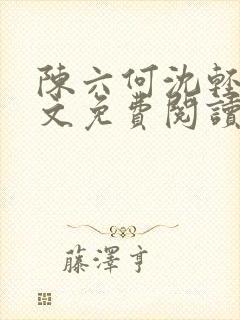 陳六何沈輕
文免費閱讀
藤澤亨